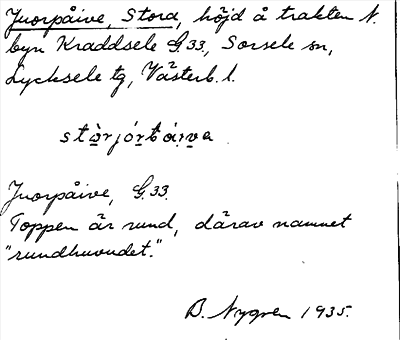 Juorpåive, Stora, höjd å trakten N.
byn Kraddsele G.33, Sorsele sn,
Lycksele tg, Västerb. l.
Juorpåive, G.33.
Toppen är rund, därav namnet
"rundhuvudet."
B. Nygren 1935.